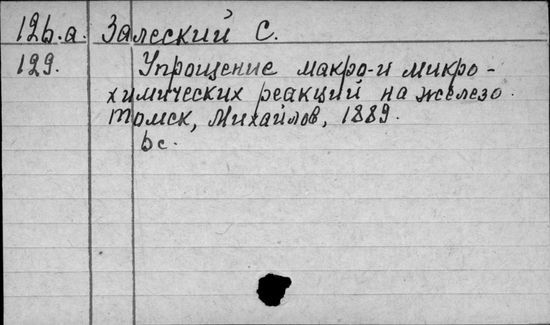 12b.a. Залеский С.
129. Упрощение макро- и микро-
химических реакций на железо.
Томск, Михайлов, 1889.
bc.